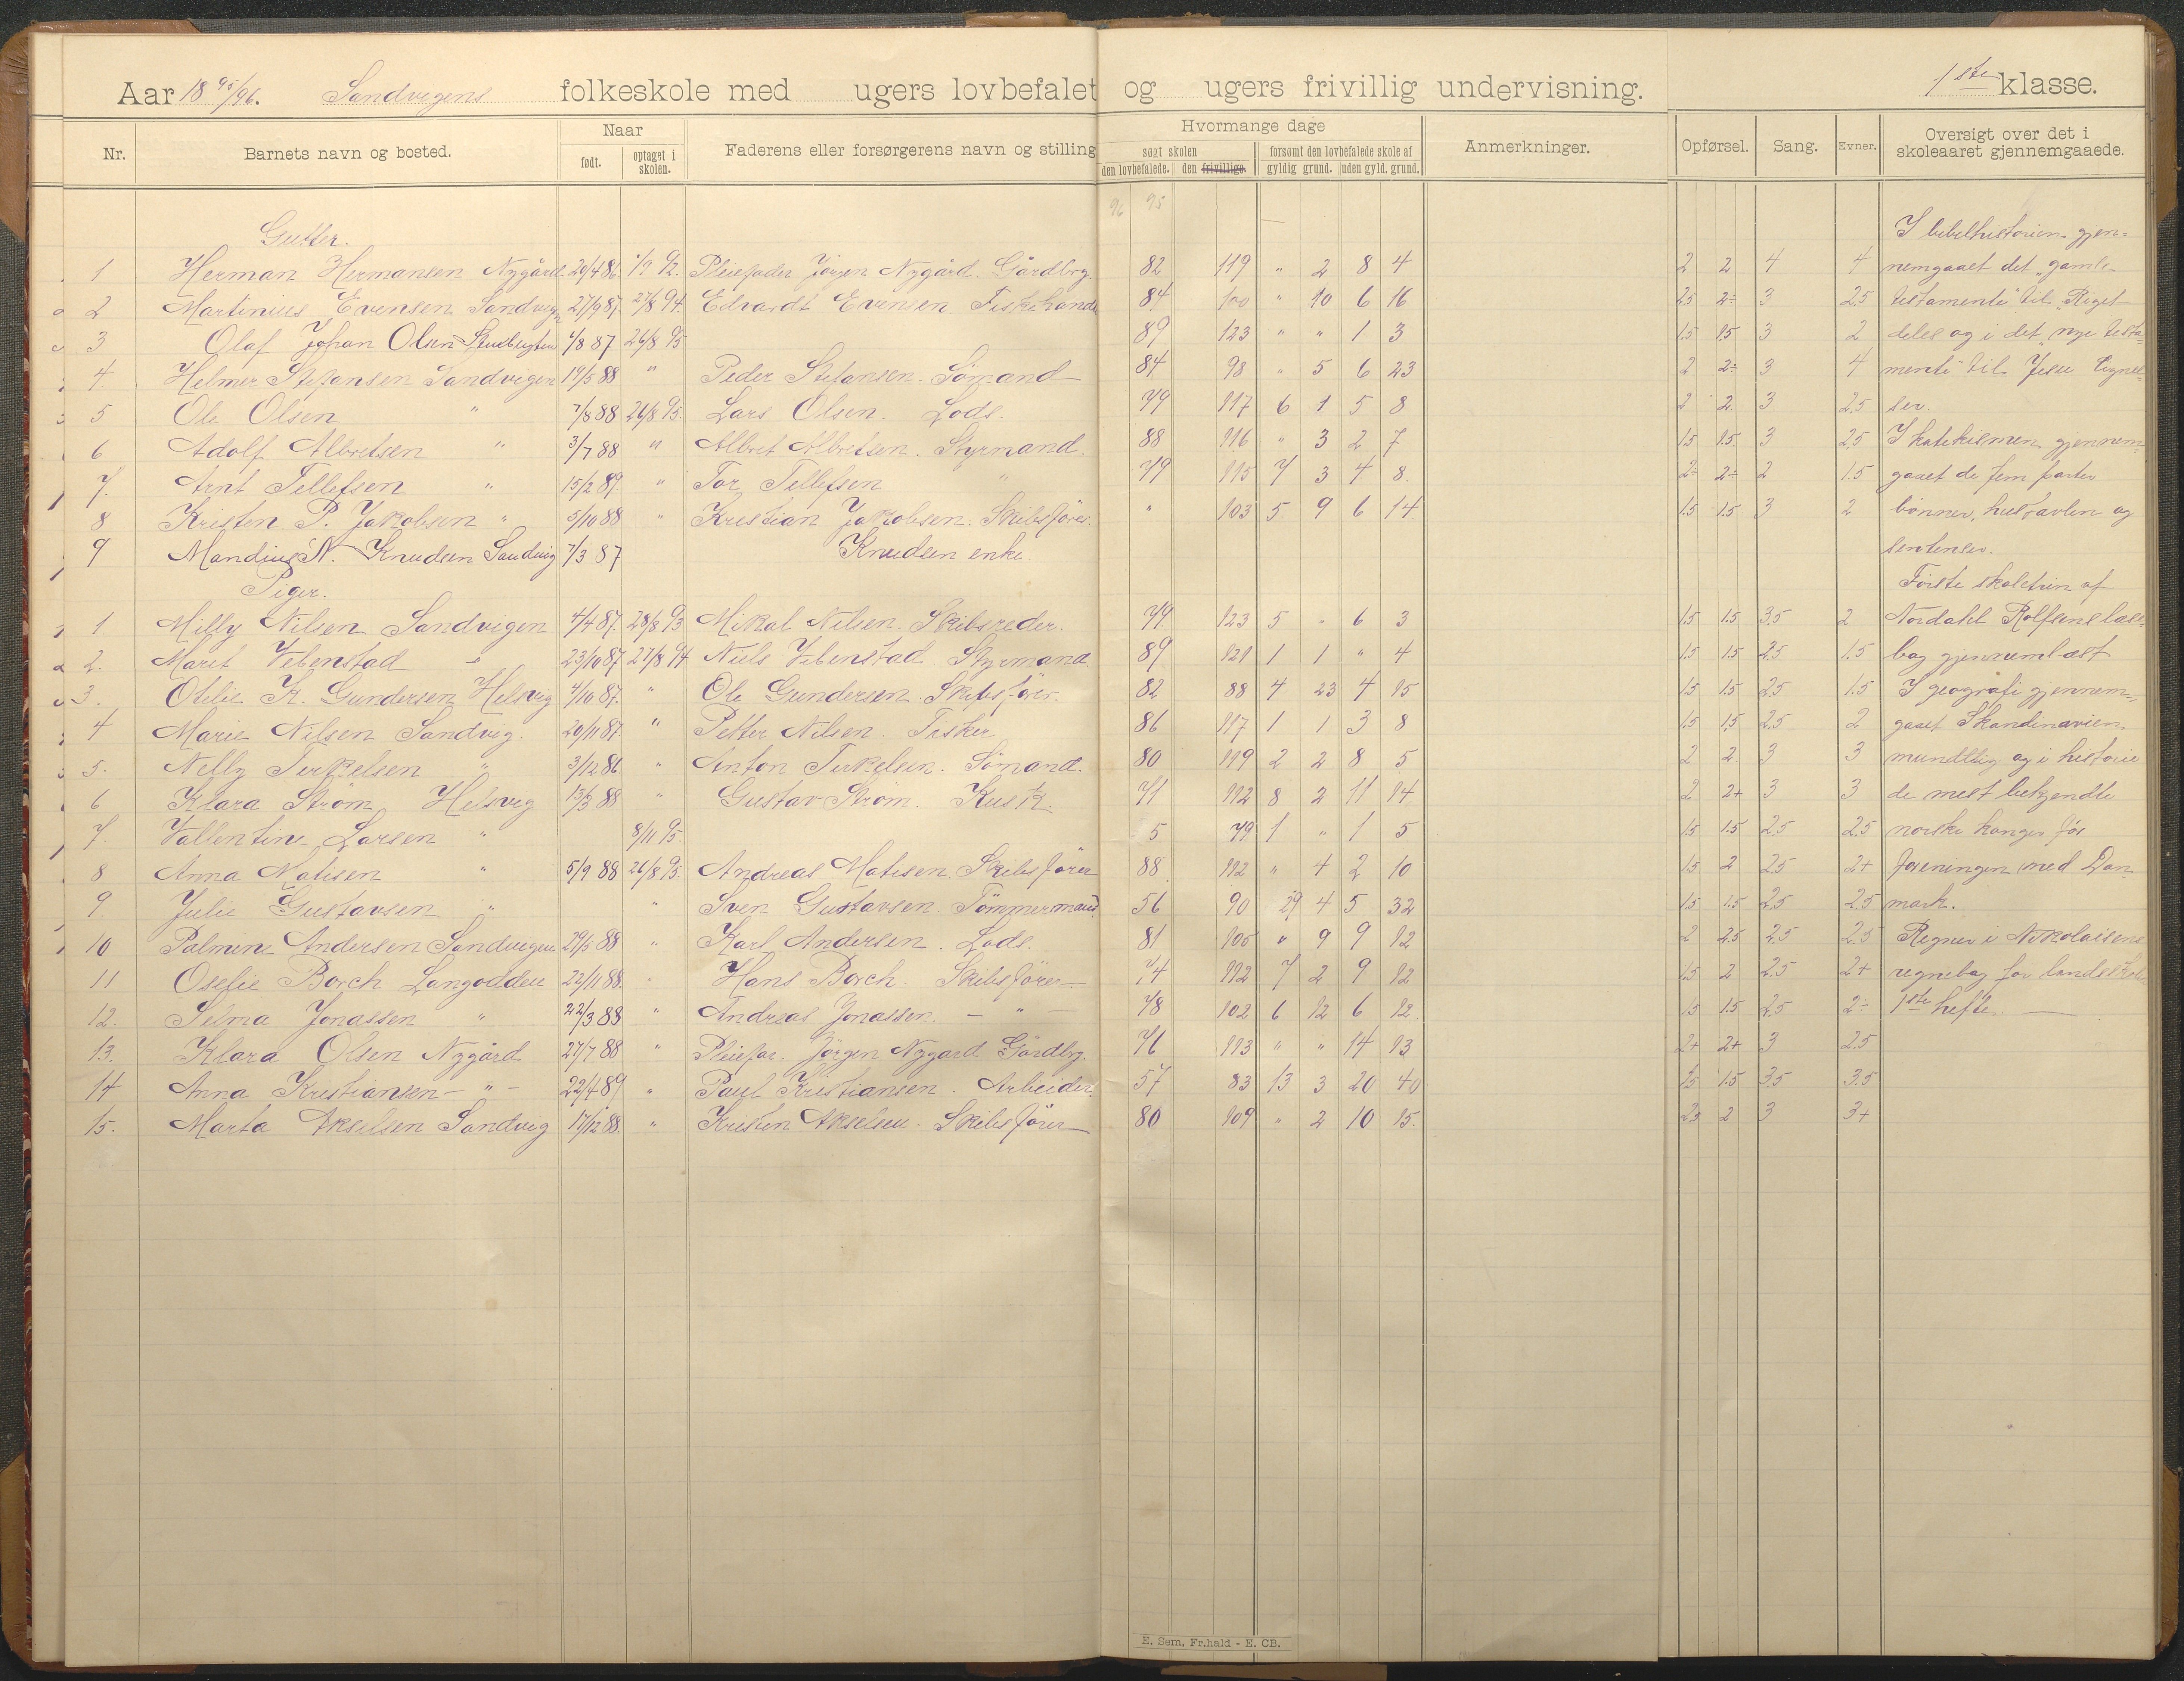 Aar 18 95/96. Sandvigens folkeskole med ugers lovbefalet og ugers frivillig undervisning. 1ste klasse.
Nr. Barnets navn og bosted. Naar født. optaget i skolen. Faderens eller forsørgerens navn og stilling Hvormange dage søgt skolen den lovbefalede. den frivillige. forsømt den lovbefalede skole af gyldig grund. uden gyld. grund. Anmerkninger. Opførsel. Sang. Evner. Oversigt over det i skoleaaret gjennemgaaede.
96 95
Gutter. I bibelhistorien gjen-
1 Herman Hermansen Nygård 20/4 86. 1/9 92. Pleiefader Jørgen Nygård Gårdbrg. 82 119 " 2 8 4 2 2 4 4 nemgaaet det "gamle
2 Martinius Evensen Sandvigen 27/9 87. 27/8 94. Edvardt Evensen Fiskehandl 84 100 " 10 6 16 2.5 2÷ 3 2.5 testamente" til "Riget
3 Olaf Johan Olsen 4/8 87 26/8 95 89 123 " " 1 3 1.5 1.5 3 2 deles og i det "nye testa-
4 Helmer Stefansen Sandvigen 19/5 88 " Peder Stefansen. Sømand 84 98 " 5 6 23 2 2÷ 3 4 mente" til Jesu
5 Ole Olsen " 7/8 88 26/8 95. Lars Olsen. Lods. 79 117 6 1 5 8 2 2 3 2.5 ser.
6 Adolf Albretsen " 3/7 88 " Albret Albretsen. Styrmand. 88 116 " 3 2 7 1.5 1.5 3 2.5 I katekismen gjennem-
7. Arnt Tellefsen " 15/2 89. " Tor Tellefsen " 79 115 7 3 4 8. 2÷ 2÷ 2 1.5 gaaet de fem parter
8 Kristen P. Jakobsen " 5/10 88 " Kristian Jakobsen. Skibsfører. " 103 5 9 6 14 1.5 1.5 3 2 bønner, hustavlen og
9 Mandius N. Knudsen Sandvig 7/3 87 Knudsen enke.
Piger. Første skoletrin af
1. Milly Nilsen Sandvigen 4/4 87. 28/8 93 Mikal Nilsen. Skibsreder. 79 123 5 " 6 3 1.5 1.5 3.5 2 Nordahl Rolfsens læse-
2. Marit Vebenstad " 23/10 87 27/8 94 Niels Vebenstad Styrmand 89 121 1 1 " 4 1.5 1.5 2.5 1.5 bog gjennemlæst
3. Otilie K. Gundersen Helsvig 4/10 87. " Ole Gundersen. Skibsfører. 82 88 4 23 4 15 1.5 1.5 2.5 1.5 I geografi gjennem-
4 Marie Nilsen Sandvig. 20/11 87. " Petter Nilsen. Fisker 86 117 1 1 3 8 1.5 1.5 2.5 2 gaaet Skandinavien
5. Nelly Terkelsen " 3/12 86 " Anton Terkelsen. Sømand. 80 119 2 2 8 5 2 2 3 3 mundtlig og i historie
6 Klara Strøm Helsvig 13/3 88 " Gustav Strøm. Kusk. 71 112 8 2 11 14 2 2+ 3 3 de mest bekjendte
7. Vallentine Larsen " 8/11 95. 5 79 1 " 1 5 1.5 1.5 2.5 2.5 norske konger før
8 Anna Matisen " 5/9 88 26/8 95. Andreas Matisen. Skibsfører 88 112 " 4 2 10 1.5 2 2.5 2+ foreningen med Dan-
9 Julie Gustavsen " " Sven Gustavsen. Tømmermand 56 90 29 4 5 32 1.5 1.5 2.5 2.5 mark.
10 Palmine Andersen Sandvigen 29/5 88 " Karl Andersen. Lods. 81 105 " 9 9 12 2 2.5 2.5 2.5 Regnet i Nikolaisens
11 Oselie Borch Langodden 22/11 88. " Hans Borch. Skibsfører 74 112 7 2 9 12 1.5 2 2.5 2+ regnebog for landsskolen
12. Selma Jonassen " 22/3 88 " Andreas Jonassen. — " — 78 102 6 12 6 12. 1.5 1.5 2.5 2÷ 1ste hefte.
13. Klara Olsen Nygård 27/7 88 " Pleiefar. Jørgen Nygård Gårdbrg. 76 113 " " 14 13 2+ 2+ 3 2.5
14 Anna Kristiansen — " — 22/4 89 " Paul Kristiansen. Arbeider. 57 83 13 3 20 40 1.5 1.5 3.5 3.5
15. Marta Akselsen Sandvig 17/12 88. " Kristen Akselsen. Skibsfører 80 109 " 2 10 15. 2 3 3+
E. Sem, Fr.hald - E. CB.